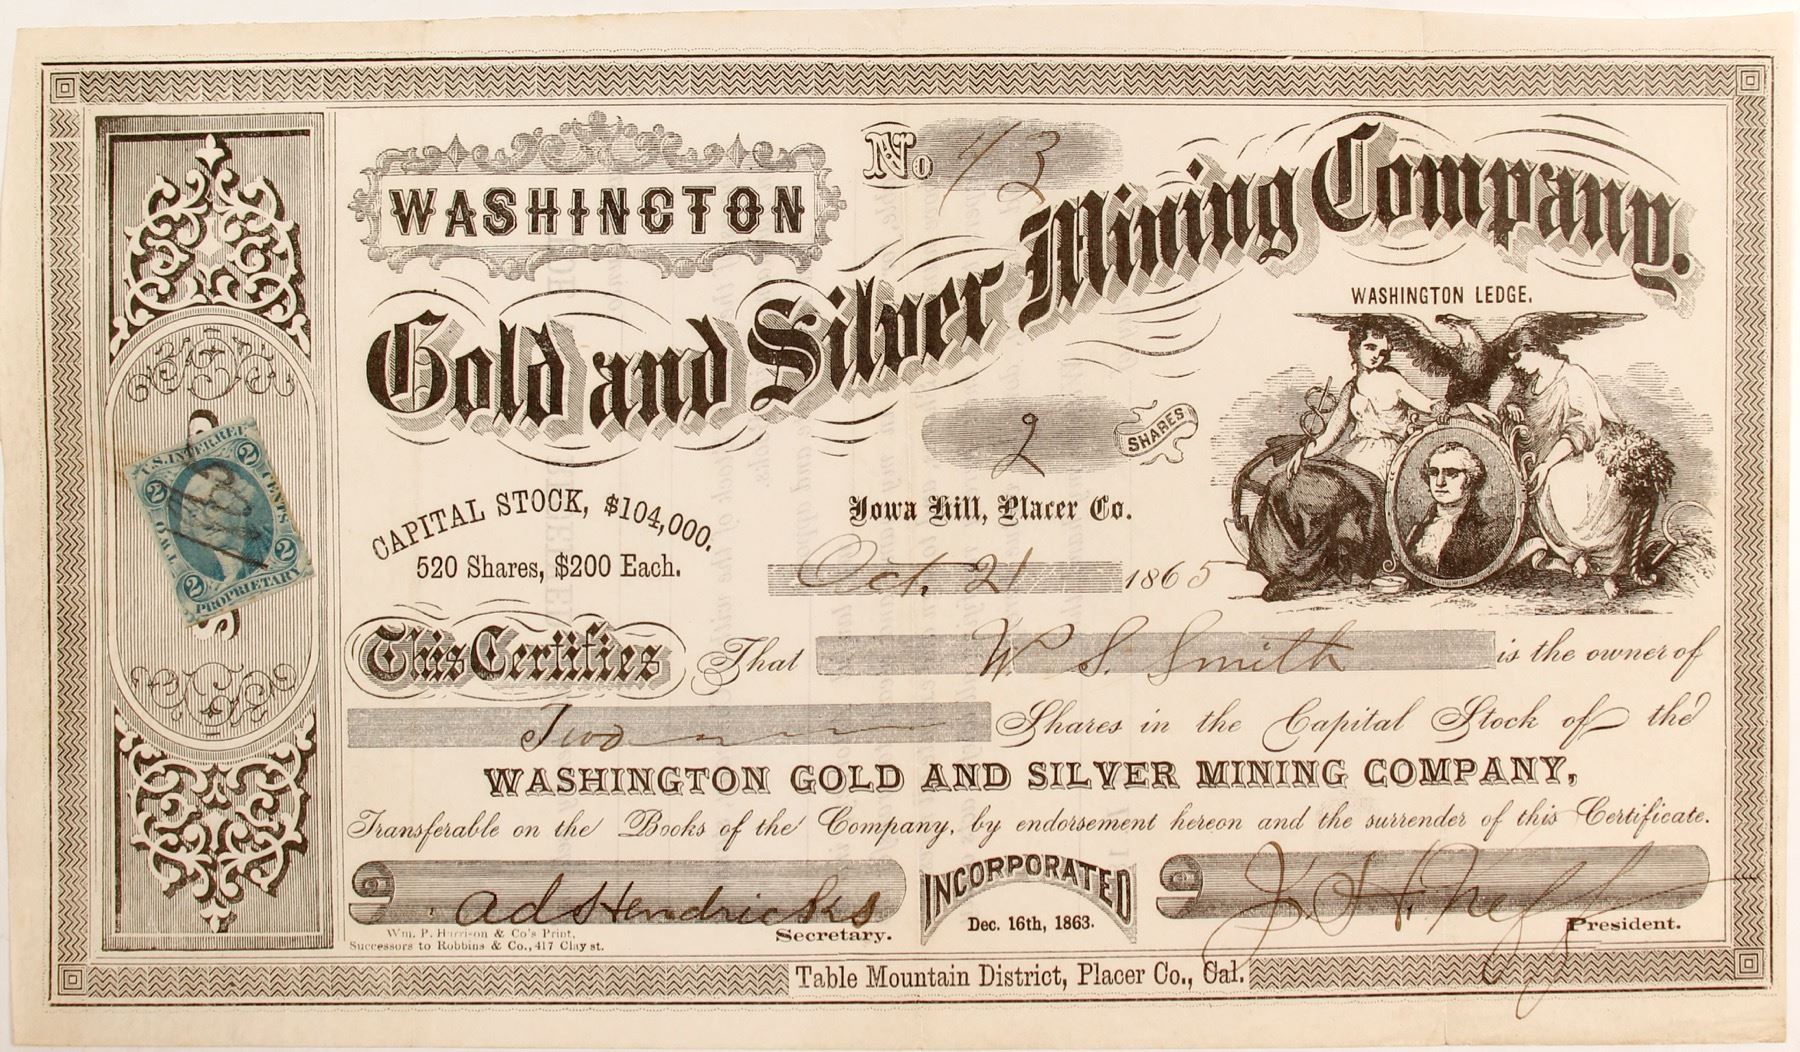 WASHINGTON
No 43
Gold and Silver Mining Company.
WASHINGTON LEDGE.
2 SHARES
CAPITAL STOCK, $104,000.
520 Shares, $200 Each.
Iowa Hill, Placer Co.
Oct. 21 1865
U.S. INTER. REV.
2 CENTS 2
TWO
2 PROPRIETARY
This Certifies That W. S. Smith is the owner of
Two Shares in the Capital Stock of the
WASHINGTON GOLD AND SILVER MINING COMPANY,
Transferable on the Books of the Company, by endorsement hereon and the surrender of this Certificate.
Hendricks
Secretary.
INCORPORATED
Dec. 16th, 1863.
J. H. Neff
President.
Wm. P. Harrison & Co's Print,
Successors to Robbins & Co., 417 Clay st.
Table Mountain District, Placer Co., Cal.